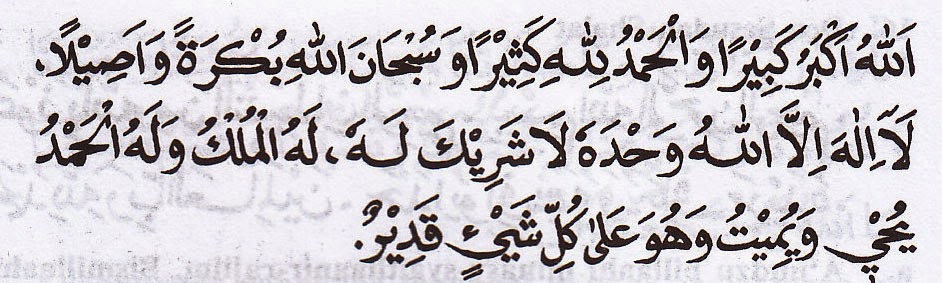 اَللهُ اَكْبَرُ كَبِيْرًا وَالْحَمْدُ لِلّٰهِ كَثِيْرًا وَسُبْحَانَ اللهِ بُكْرَةً وَاَصِيْلًا،
لَآ اِلٰهَ اِلَّا اللهُ وَحْدَهٗ لَا شَرِيْكَ لَهٗ، لَهُ الْمُلْكُ وَلَهُ الْحَمْدُ
يُحْيِيْ وَيُمِيْتُ وَهُوَ عَلٰى كُلِّ شَيْءٍ قَدِيْرٌ.